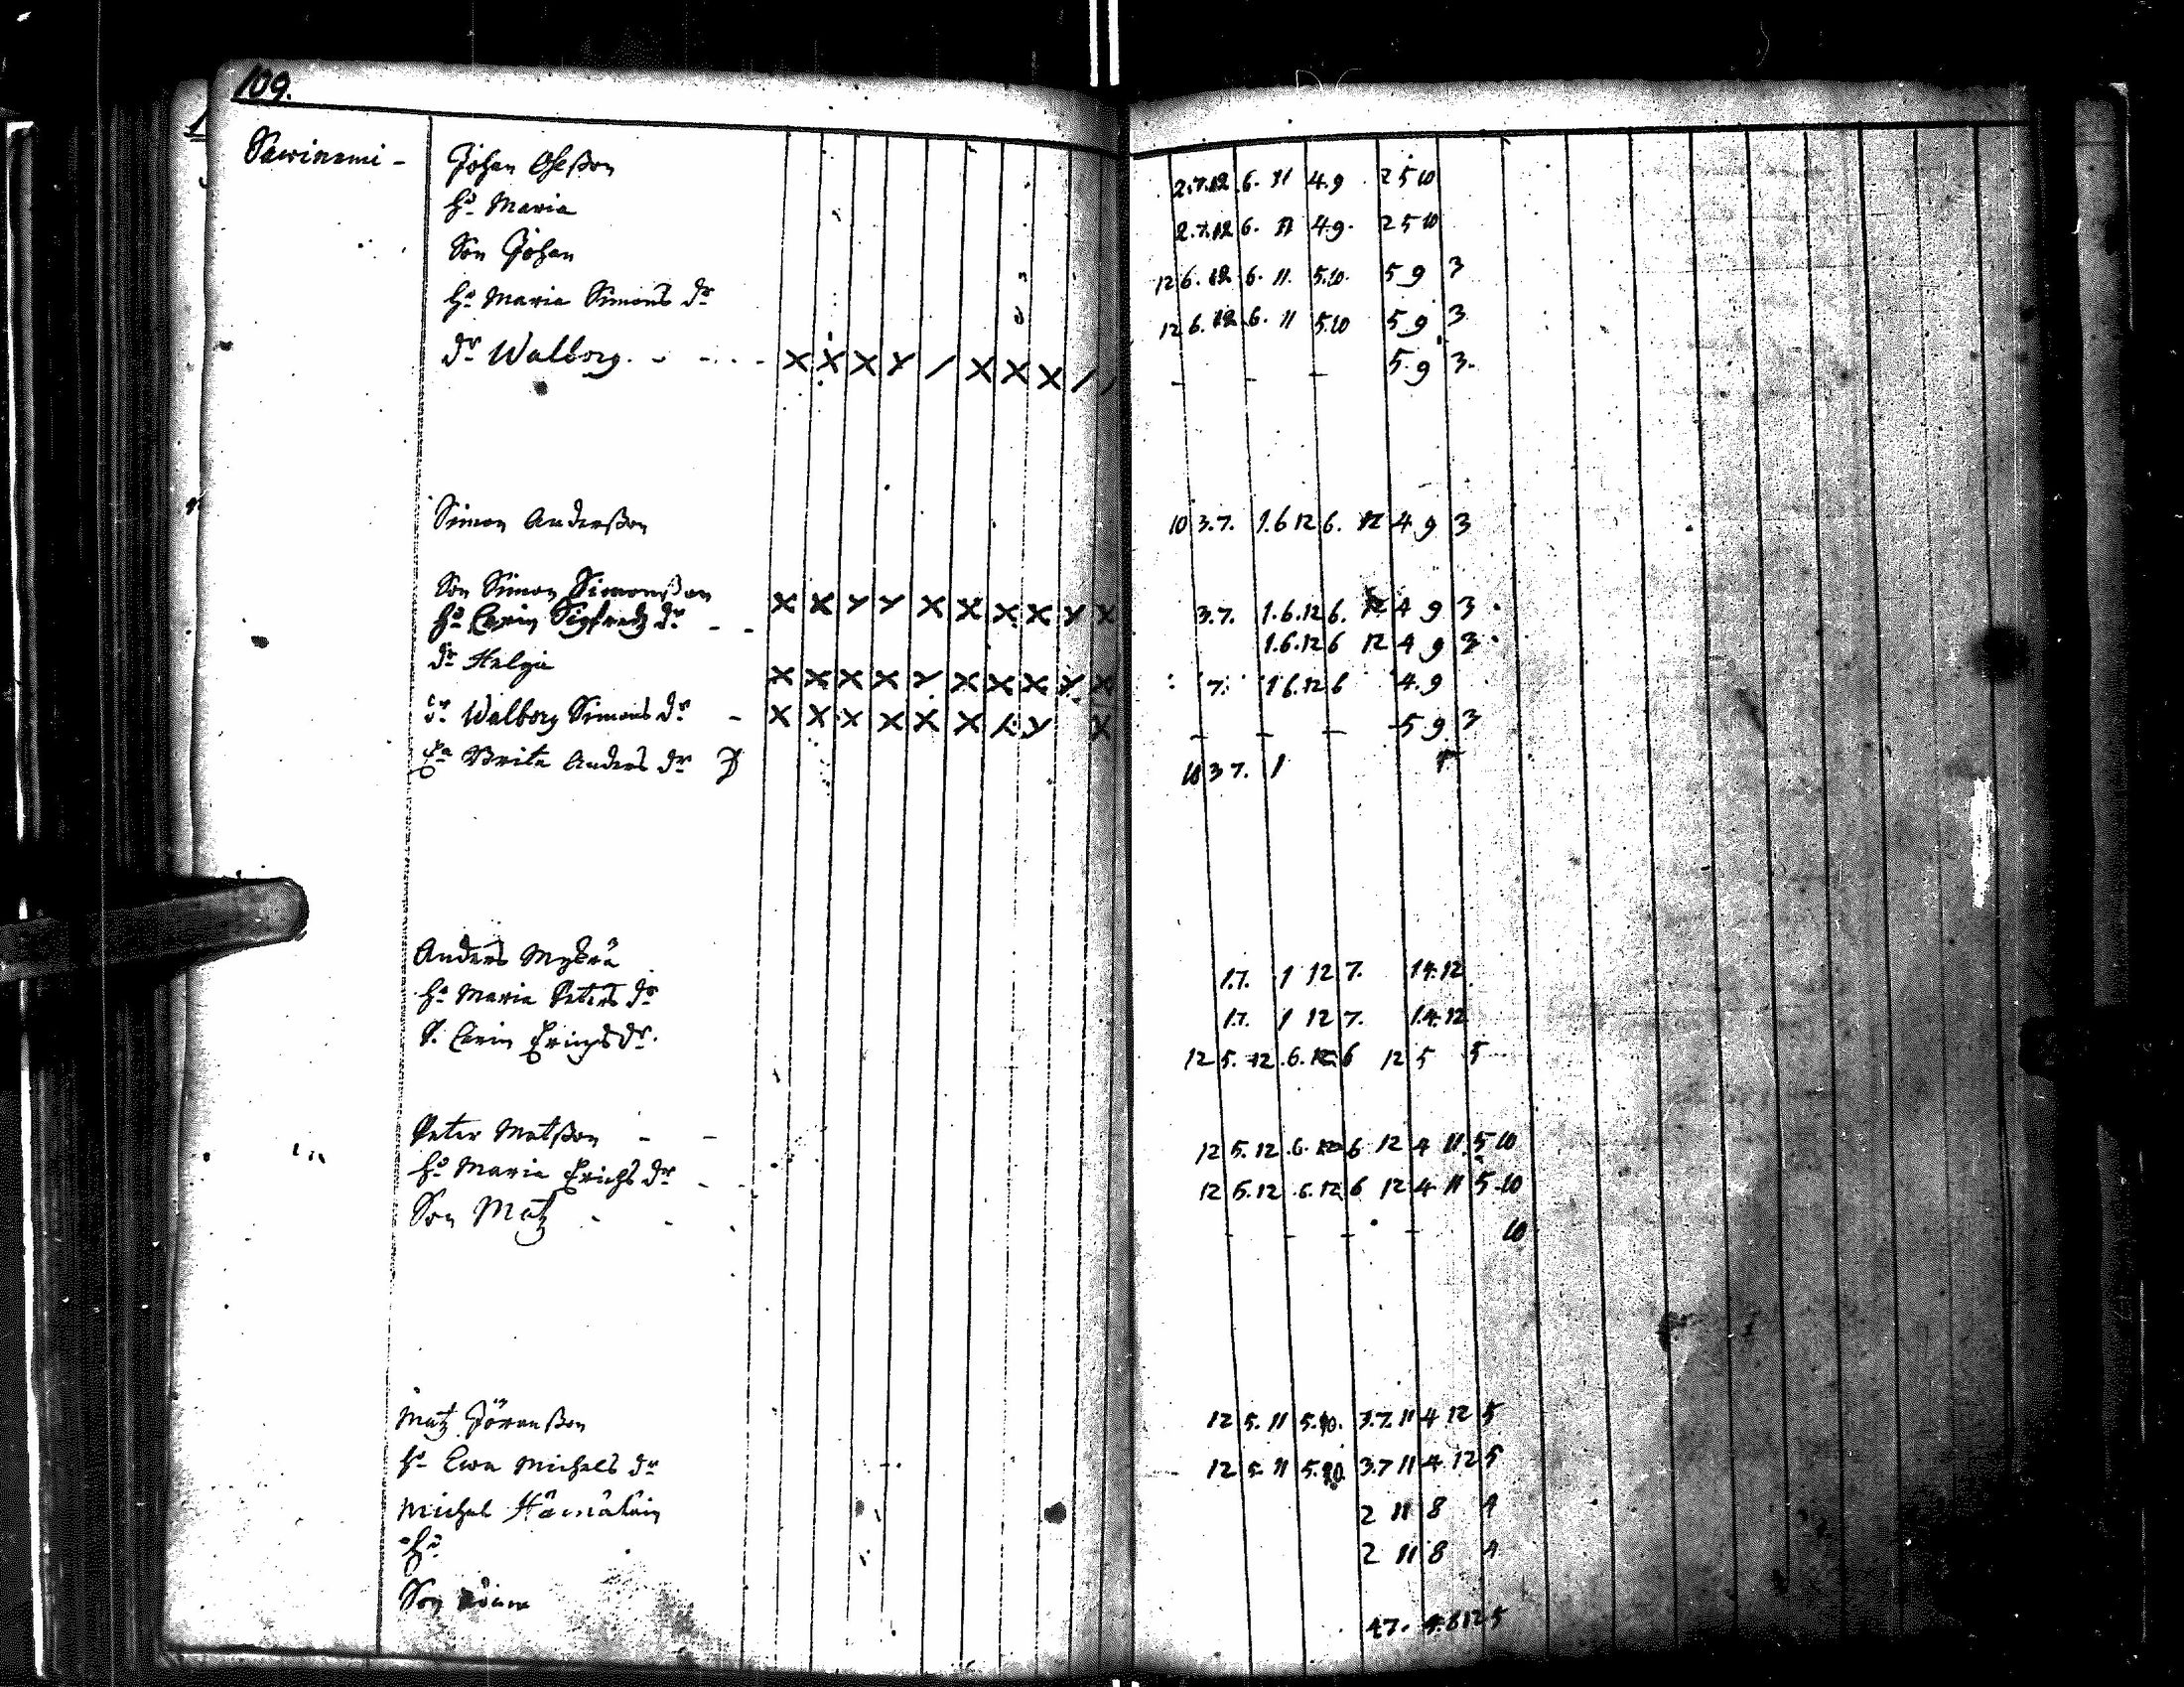 109.
Sawinemi - Johan Olsßon 2.7.12 6. 11 4.9 2 5 10
h:o Maria 2.7.12 6. 11 4.9. 2 5 10
Son Johan 12 6. 12 6. 11. 5.10. 5 9 3
h:o Maria Simons d:r 12 6. 12 6. 11 5.10 5 9 3
d:r Walborg. - - - - X X X Y / X X X / / - - - 5. 9 3.
Simon Anderßon 10 3.7. 1.6 12 6. 12 4 9 3
Son Simon Simonßon
X X Y Y X X X X Y X 3.7. 1.6.12 6. 12 4 9 3.
h:o Carin Sigfredz d:r - - 1.6.12 6 12 4 9 3.
d:r Helga X X X X Y X X X Y X 7. 1 6.12 6 4.9
d:r Walborg Simons d:r - X X X X X X X Y X - - - 5 9 3
Brita Anders d:r 10 3 7. 1
Anders Mykrä 1.7. 1 12 7. 1 4.12
h:o Maria Peters d:r 1.7. 1 12 7. 1.4.12
Carin Erichsd:r. 12 5. 12 .6. 12 6 12 5 5
Peter Matßon - - 12 5. 12 .6. 12 6 12 4 11 5 10
h:o Maria Erichs d:r - - 12 5. 12 .6. 12 6 12 4 11 5 10
Son Matz - - - - - - 10
Matz Jöranßon 12 5. 11 5.10. 3.7. 11 4 12 5
h:o Ewa Michels d:r 12 5 11 5.10. 3.7 11 4 12 5
Michel Hämäläin 2 11 8 4
h:o 2 11 8 4
Son 4 7. 4.8 12 5